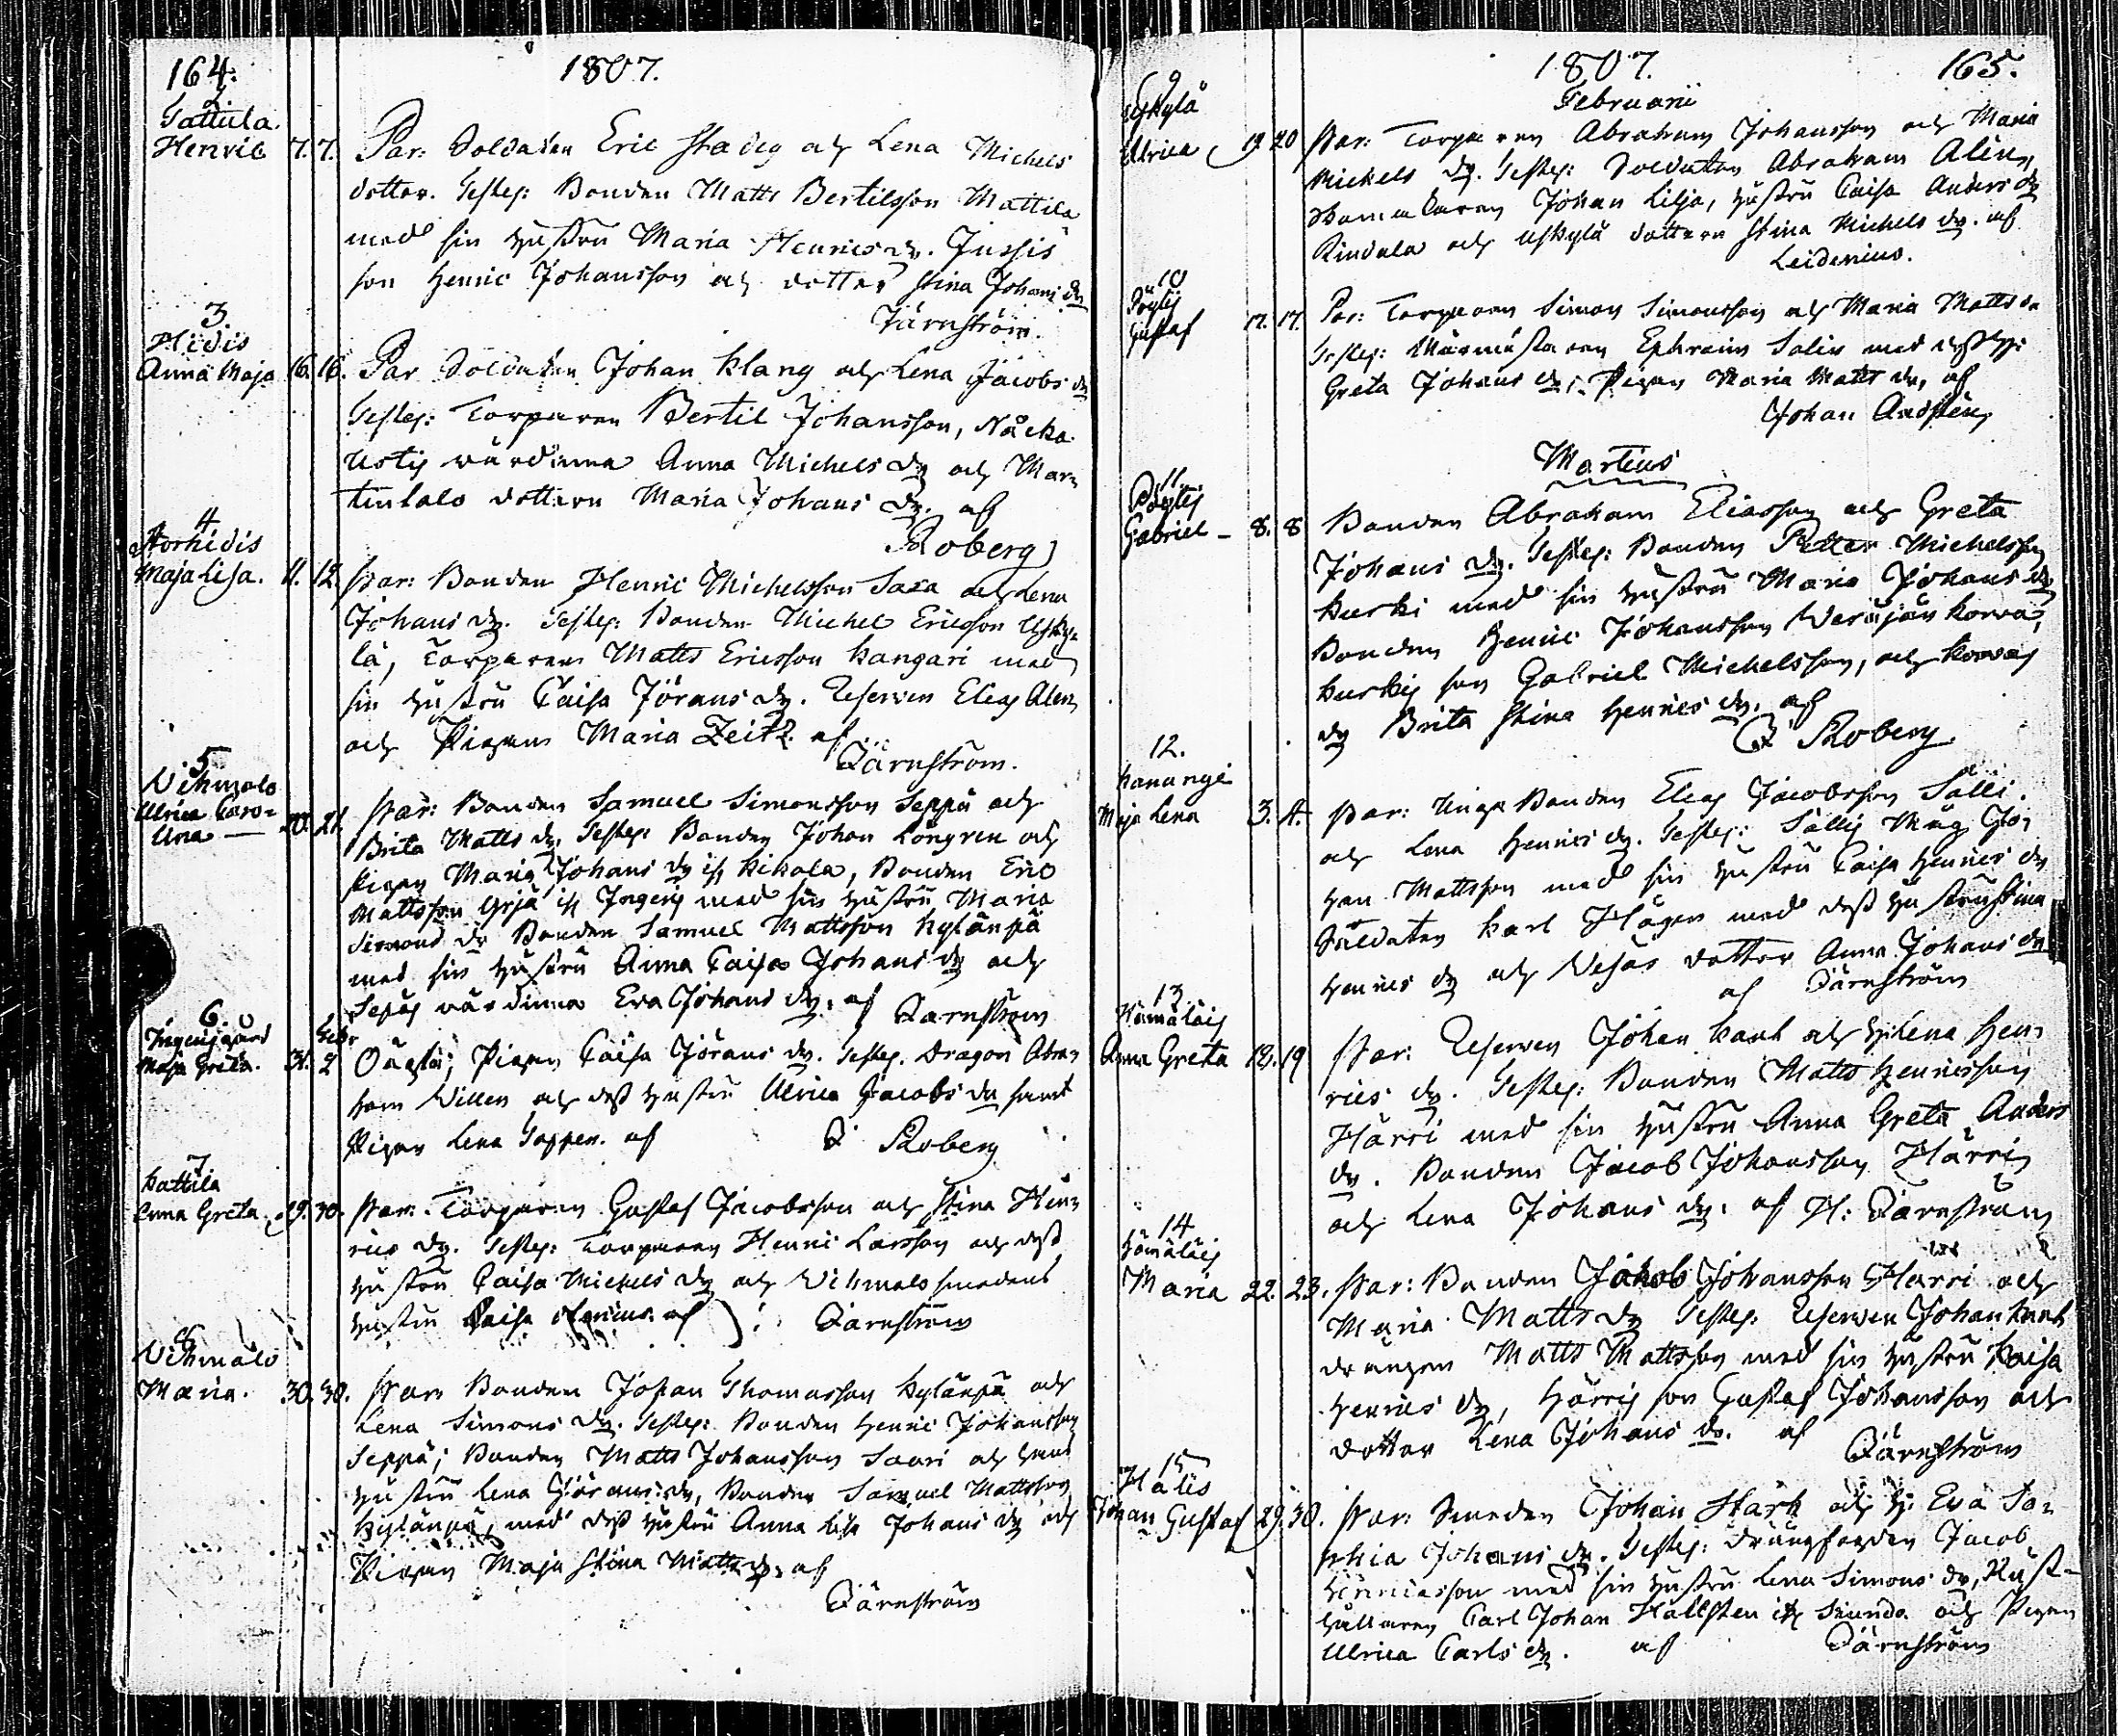 164.
1807.
2.
Gattula
Henric 7. 7. Par: Soldaten Eric Stadig och Lena Michels
dotter. Testes: Bonden Matts Bertilsson Mattila
med sin hustru Maria Henricsdr. Jussis
son Henric Johansson och dotter Stina Johansdr
Järnström.
3.
Hidis
Anna Maja 16. 16. Par Soldaten Johan Klang och Lena Jacobsdr
Testes: Torparen Bertil Johansson, Nåcka
Ustig värdinna Anna Michelsdr och Mar
tintalo dottren Maria Johansdr. af
Roberg
4
Storhidis
Maja Lisa. 11. 12. Par: Bonden Henric Michelsson Saxa och Lena
Johansdr. Testes: Bonden Michel Ericsson Uský
lä, Torparen Matts Ericsson Kangari med
sin hustru Caisa Jöransdr. Reserven Elias Alen
och Pigan Maria Zeitz. af
Järnström.
5
Vihmalo
Ulrica Caro-
lina — 20. 21. Par: Bonden Samuel Simonsson Seppä och
Brita Mattsdr, Testes: Bonden Johan Löngren och
Pigan Maria Johansdr ifr Kikola, Bonden Eric
Mattsson Yrjä ifr Ingeris med sin hustru Maria
Simonsdr Bonden Samuel Mattsson Kylänpä
med sin hustru Anna Caisa Johansdr och
Sepäs värdinna Eva Johansdr. af Järnström
6.
Febr
Maja Greta. 31. 2 Oägta; Pigan Caisa Jöransdr. Testes. Dragon Abra-
ham Villen och dess hustru Ulrica Jacobsdr samt
Pigan Lena Toppen. af Roberg
7
Kattila
Anna Greta. 29. 30. Par. Torparen Gustaf Jacobsson och Stina Hen-
ricsdr. Testes: Torparen Henric Larsson och dess
hustru Caisa Michelsdr och Vihmalo smedens
hustru Caisa af Järnström
8
Vihmalo
Maria. 30. 30. Par Bonden Johan Thomasson Kylänpä och
Lena Simonsdr. Testes: Bonden Henric Johansson
Seppä; Bonden Matts Johansson Saari och hans
hustru Lena Göransdr, Bonden Samuel Mattsson
Kylänpä, med dess hustru Anna Lisa Johansdr och
Pigan Maja Stina Mattsdr. af
Järnström
1807. 165.
Februarii
9
Uskylä
Ulrica 19 20 Par: Torparen Abraham Johansson och Maria
Mickelsdr. Testes: Soldaten Abraham Alén,
Skomakaren Johan Lilja, hustru Caisa Andersdr
Rindala och Uskylä dottren Stina Michelsdr. af
Leidenius.
10
Gustaf 17. 17. Par: Torparen Simon Simonsson och Maria Mattsdr
Testes: Murmästaren Ephraim Salin med dess hu:
Greta Johansdr, Pigan Maria Mattsdr, af
Johan Andsten
Martius
11.
Gabriel — 8. 8 Bonden Abraham Eliasson och Greta
Johansdr. Testes: Bonden Petter Michelsson
Kurki med sin hustru Maria Johansdr
Bonden Henric Johansson Verajänkorva,
Kurkis son Gabriel Michelsson, och Korvas
dr Brita Stina Henricsdr. af
Roberg.
12.
Maja Lena 3. 4. Par: Unga Bonden Elias Jacobsson Sälli.
och Lena Henricsdr. Testes: Sällis Måg Jo-
han Mattsson med sin hustru Caisa Henricsdr
Soldaten Karl Hägen med dess hustru Stina
Henricsdr och Vesas dotter Anna Johansdr
af Järnström
13
Hämäläis
Anna Greta 18. 19 Par: Reserven Johan Kank och h: Lena Hen-
ricsdr. Testes: Bonden Matts Henricsson
Härri med sin hustru Anna Greta Anders
dr. Bonden Jacob Johansson Härri
och Lena Johansdr. af H: Järnström
14
Hämäläis
Maria 22. 23. Par: Bonden Jakob Johansson Härri och
Maria Mattsdr Testes: Reserven Johan Kank
drängen Matts Mattsson med sin hustru Kaisa
Henricsdr, Härris son Gustaf Johansson och
dotter Lena Johansdr. af
Järnström
15
Hälis
Johan Gustaf 29. 30. Par: Smeden Johan Stark och h: Eva So-
phia Johansdr. Testes: Jacob
Henricsson med sin hustru Lena Simonsdr, Rust-
hållaren Carl Johan Hallsten ifr Skunda och Pigan
Ulrica Carlsdr. af Järnström